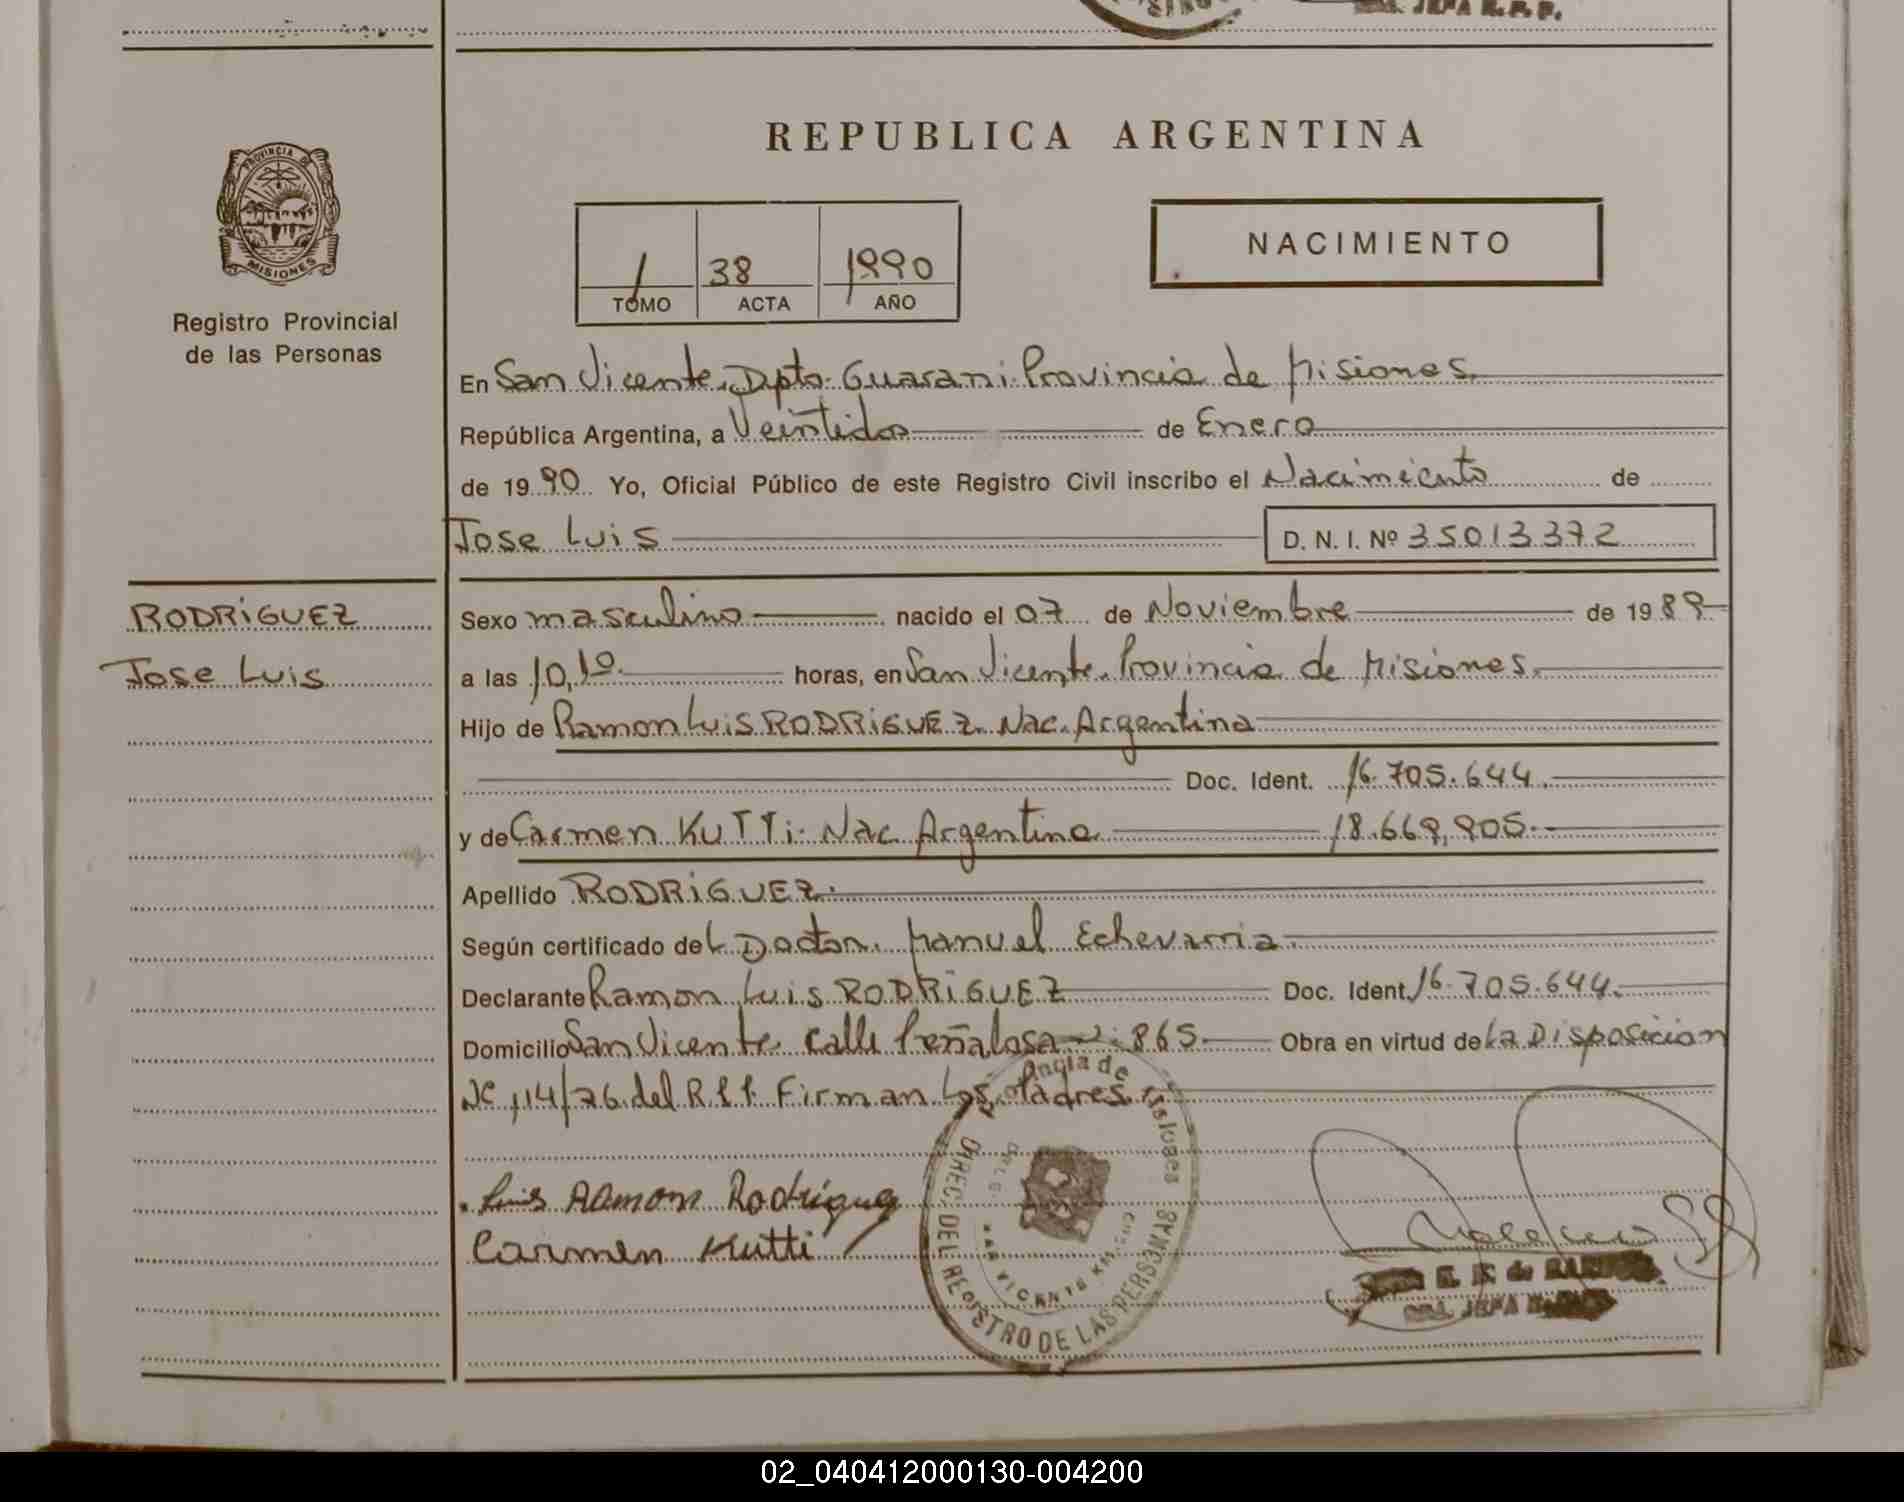 JEFA R. P. P.
REPUBLICA ARGENTINA
PROVINCIA DE
MISIONES
Registro Provincial
de las Personas
1 38 1990
TOMO ACTA AÑO
NACIMIENTO
En San Vicente. Dpto. Guarani. Provincia de Misiones.
República Argentina, a Veintidos de Enero
de 1990 Yo, Oficial Público de este Registro Civil inscribo el Nacimiento de
Jose Luis D. N. I. Nº 35013372
RODRIGUEZ
Jose Luis
Sexo masculino nacido el 07 de Noviembre de 1989
a las 10,10 horas, en San Vicente. Provincia de Misiones.
Hijo de Ramon Luis RODRIGUEZ. Nac. Argentina
Doc. Ident. 16.705.644.
y de Carmen KUTTI. Nac. Argentina 18.669,905.
Apellido RODRIGUEZ.
Según certificado del Doctor. Manuel Echevarria.
Declarante Ramon Luis RODRIGUEZ Doc. Ident. 16.705.644.
Domicilio San Vicente. Calle Peñalosa 865. Obra en virtud de La Disposicion
Nº 114/76 del R.P.P. Firman Los Padres.
Luis Ramon Rodriguez
Carmen Kutti
DIREC. DEL REGISTRO DE LAS PERSONAS
SAN VICENTE
JEFA
02_040412000130-004200